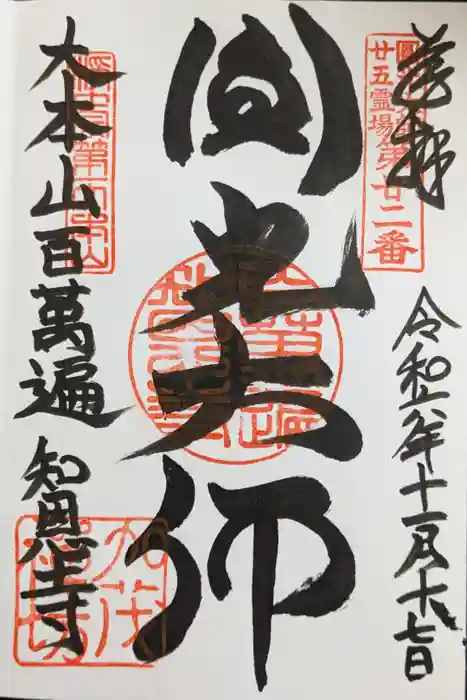 奉拝
廿五霊場第廿二番
令和六年十一月十七日
圓光大師
大本山百萬遍 知恩寺